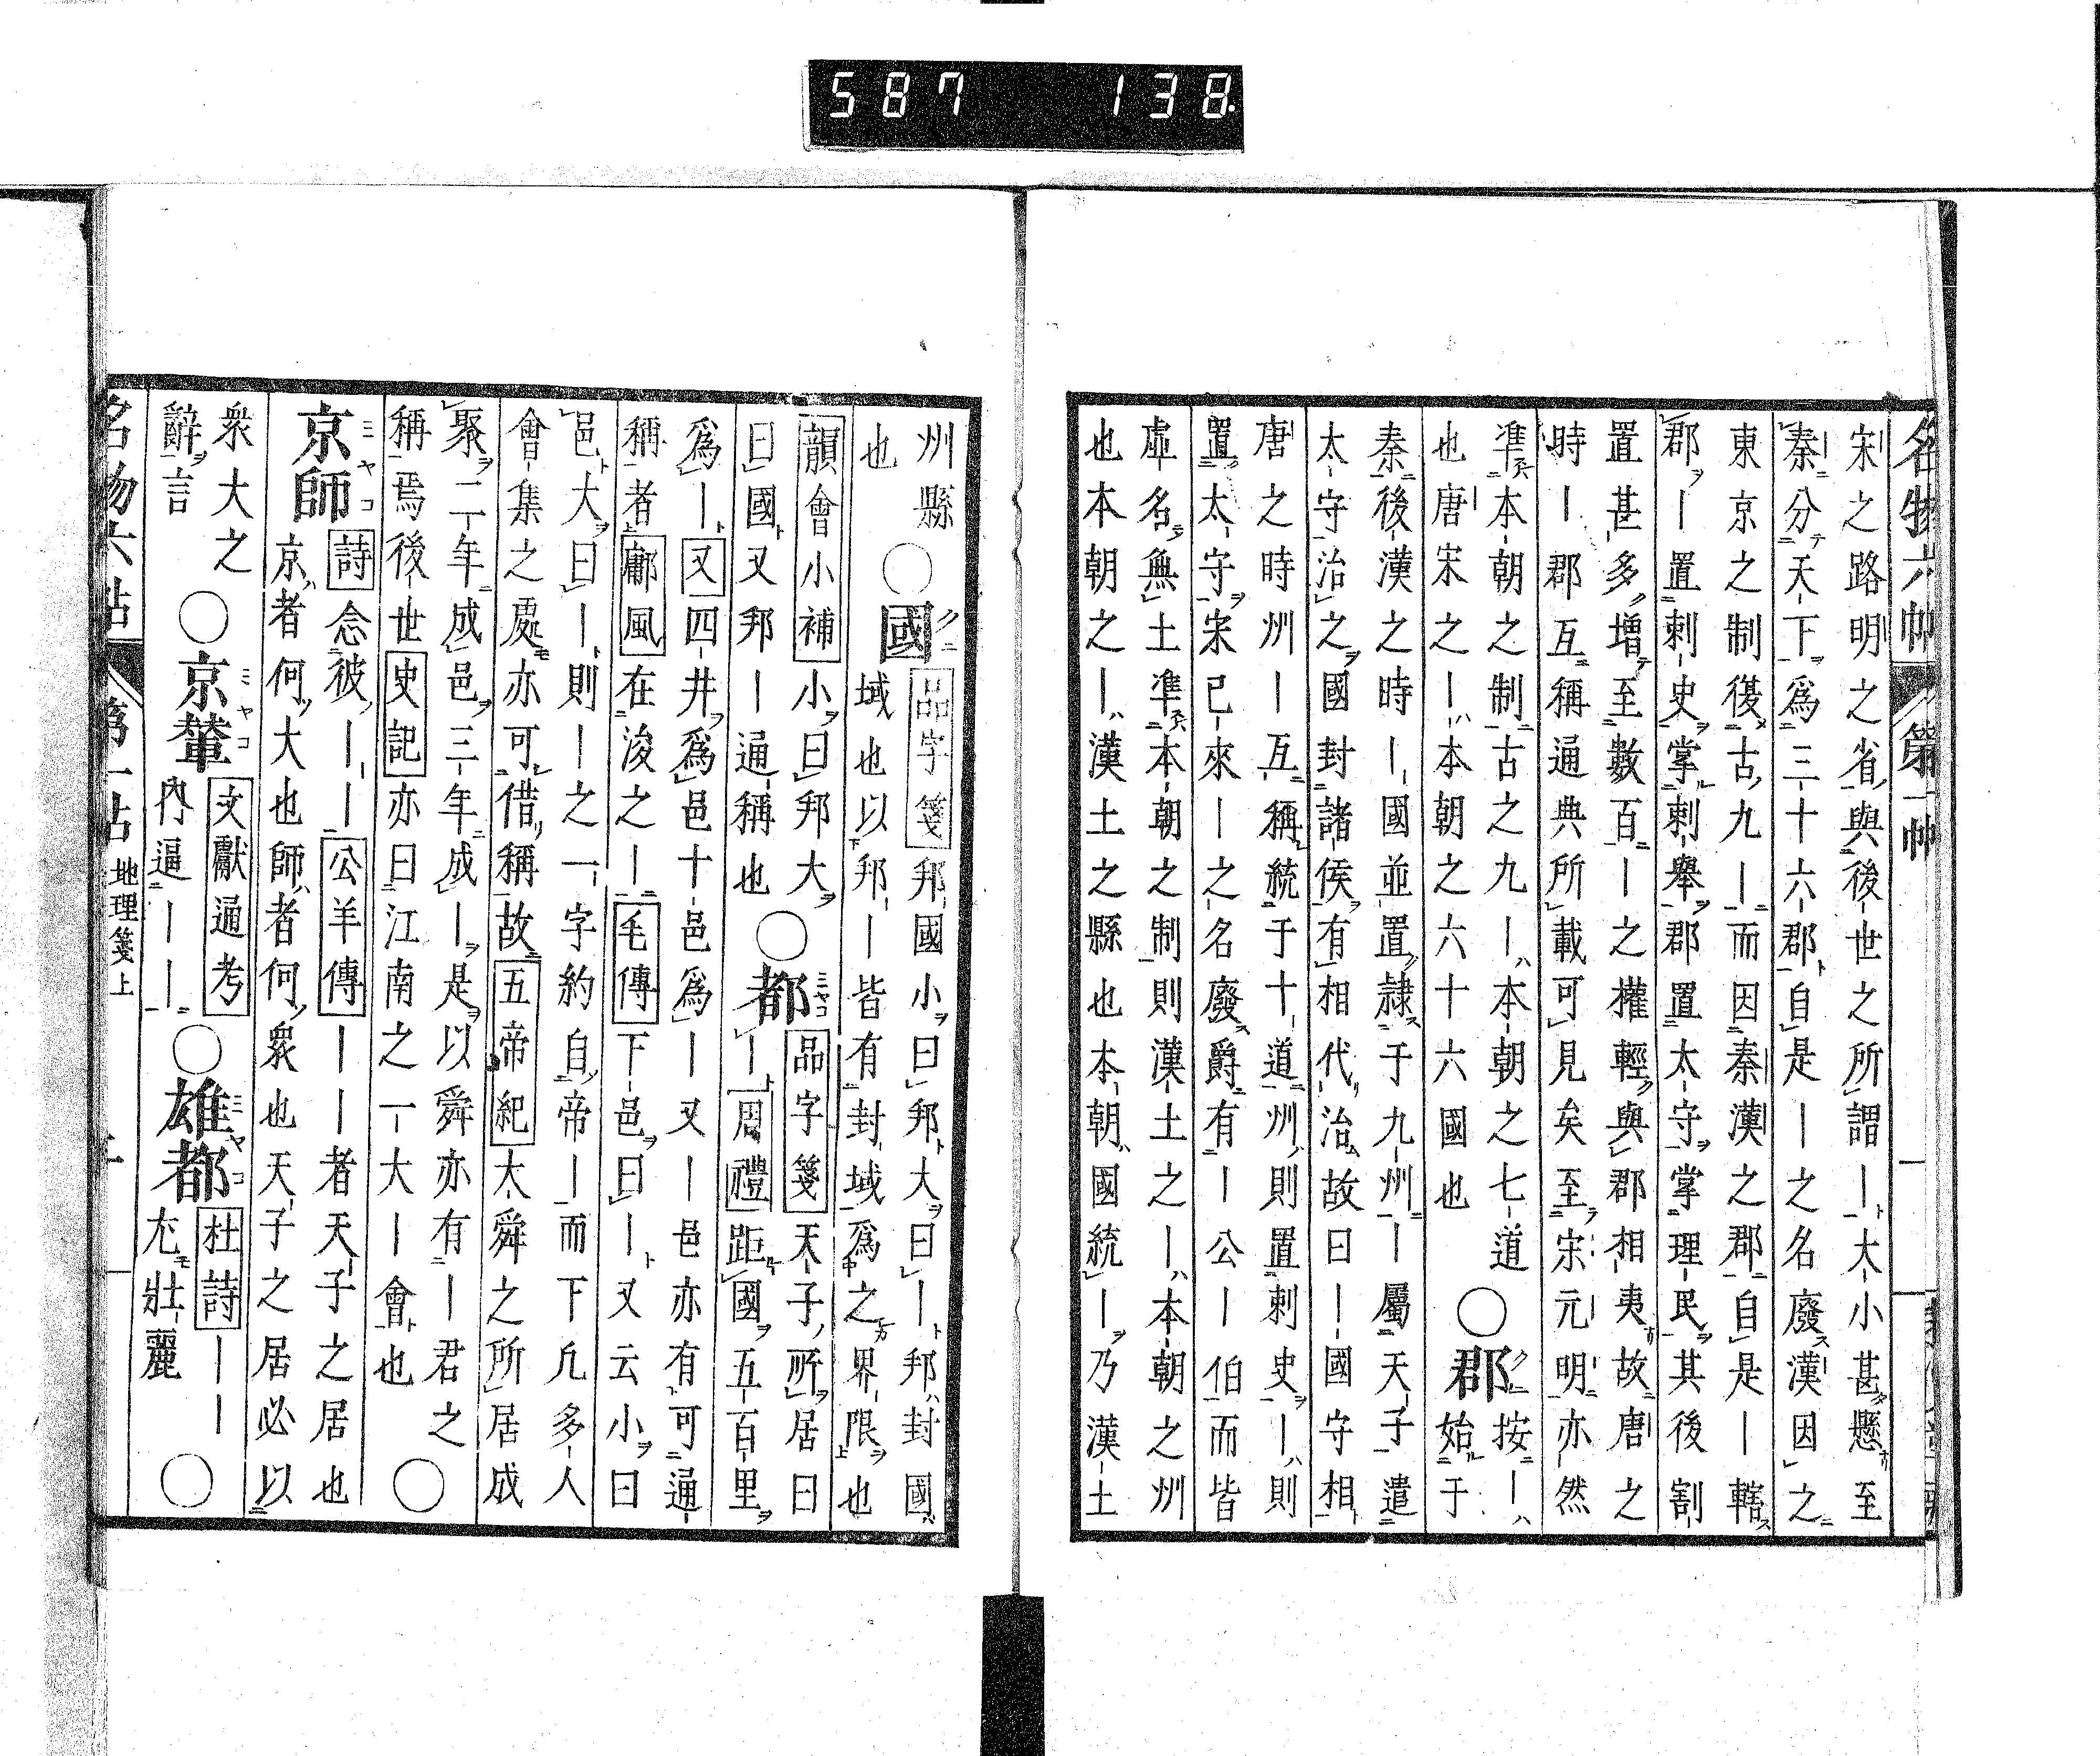 587 138
名物六帖 第一帖
宋之路明之省與後世之所謂｜大小甚懸至
秦分天下爲三十六郡自是｜之名廢漢因之
東京之制復古九｜而因秦漢之郡自是｜轄
郡｜置刺史掌刺舉郡置太守掌理民其後割
置甚多增至數百｜之權輕與郡相夷故唐之
時｜郡互稱通典所載可見矣至宋元明亦然
準本朝之制古之九｜本朝之七道
也唐宋之｜本朝之六十六國也
○郡 クニ 按｜始于
秦後漢之時｜國並置隷于九州｜屬天子遣
太守治之國封諸侯有相代治故曰｜國守相
唐之時州｜互稱統于十道州則置刺史｜則
置太守宋已來｜之名廢爵有｜公｜伯而皆
虛名無土準本朝之制則漢土之｜本朝之州
也本朝之｜漢土之縣也本朝國統｜乃漢土
州縣
也
○國 クニ 品字箋 邦國小曰邦大曰｜邦封國
域也以邦｜皆有封域爲之界限也
韻會小補 小曰邦大
曰國又邦｜通稱也
○都 ミヤコ 品字箋 天子所居曰
｜周禮 距國五百里
爲｜又四井爲邑十邑爲｜又｜邑亦有可通
稱者鄘風在浚之｜毛傳下邑曰｜又云小曰
邑大曰｜則｜之一字約自帝｜而下凡多人
會集之處亦可借稱故五帝紀太舜之所居成
聚二年成邑三年成｜是以舜亦有｜君之
稱焉後世史記亦曰江南之一大｜會也
○
京師 ミヤコ 詩 念彼｜｜公羊傳｜｜者天子之居也
京者何大也師者何衆也天子之居必以
衆大之
辭言
○京輦 ミヤコ 文獻通考
內逼｜｜
○雄都 ミヤコ 杜詩｜｜
尤壯麗
○
名物六帖 第一帖 地理箋上